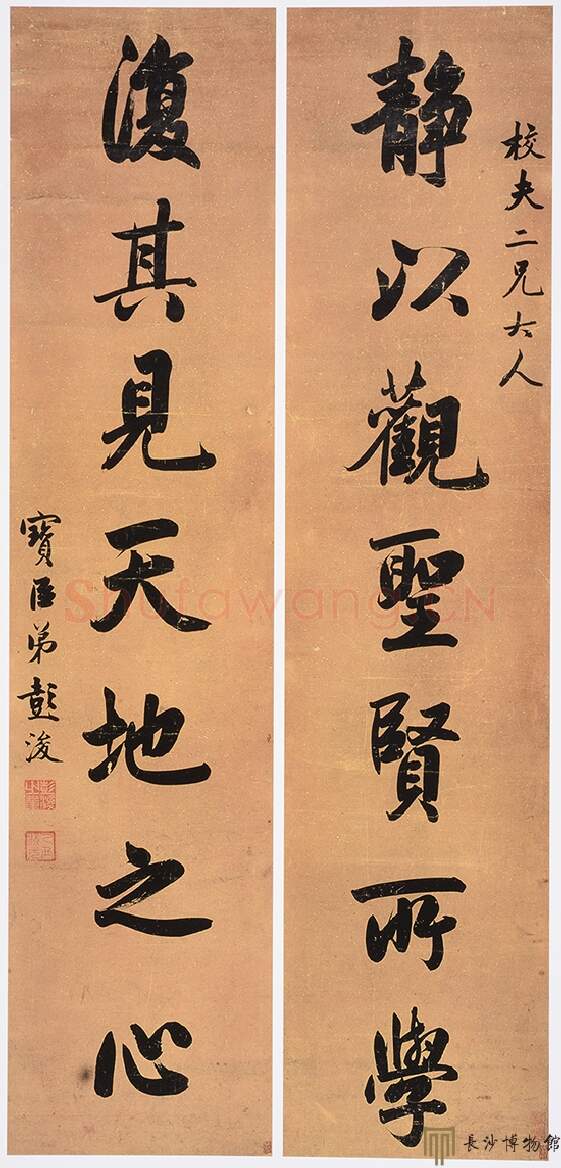 校夫二兄大人
靜以觀聖賢所學
復其見天地之心
寶臣弟彭浚
Shufawang.CN
長沙博物館